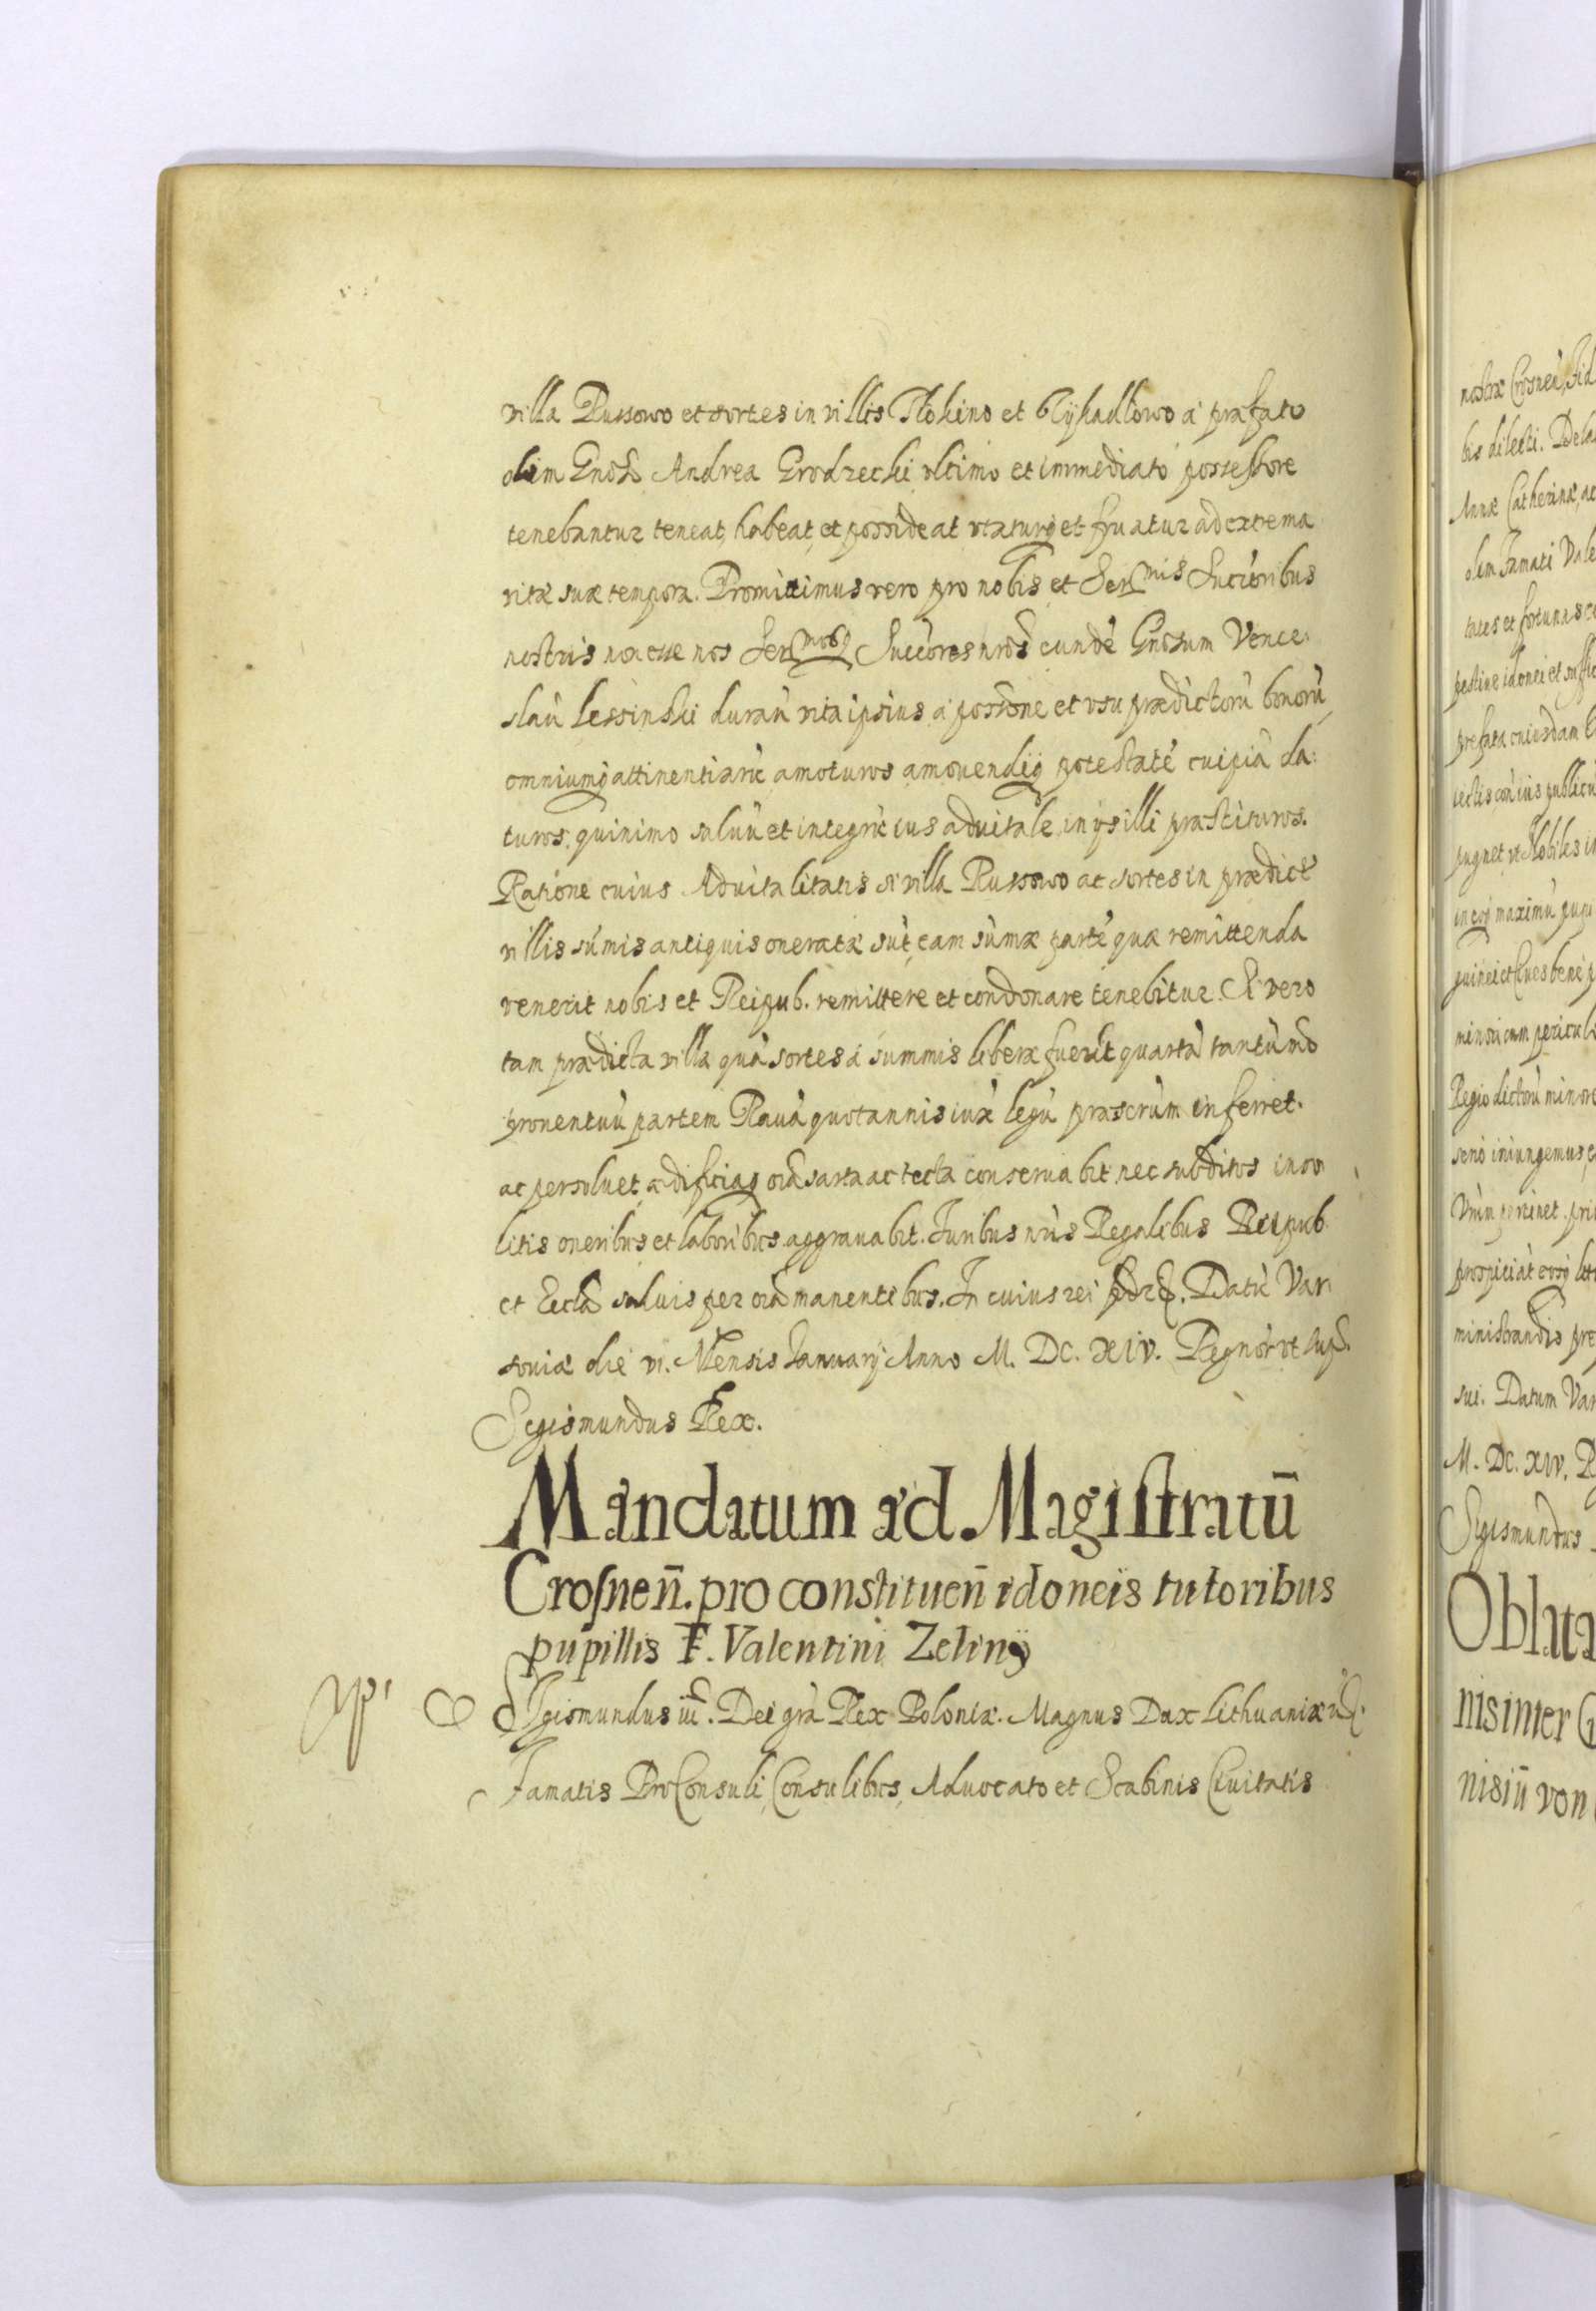 villa Russowo et sortes in villis Tłokino et Wÿkadłowo à præfato
olim Gnoso Andrea Grodzecki ultimo et immediato possessore
tenebantur teneat, habeat, et possideat utaturq́ et fruatur ad extrema
vitæ suæ tempora. Promittimus vero pro nobis et Sermis Succoribus
nostris non esse nos Sermosq́ Succores nros eundē Gnosum Vence:
slaū Lessinski durañ vita ipsius à possone et usu prædictorū bonorū
omniumq́ attinentiarū amoturos amovendiq́ potestatē cuipiā da:
turos, quinimo salvū et integrū ius advitale in ijs illi præstituros.
Ratione cuius Advitalitatis si villa Russowo ac sortes in prædict
villis sūmis antiquis oneratæ sūt, eam sūmæ partē quæ remittenda
venerit nobis et Reipub. remittere et condonare tenebitur. Si vero
tam prædicta villa quā sortes à summis liberæ fuerit quartā tantūmo
proventuū partem Ravā quotannis iuxā legū præscrūm inferret.
ac persolvet, ædificiaq́ oīa sarta ac tecta conservabit, nec subditos inso
litis oneribus et laboribus aggravabit. Iuribus nris Regalibus Reipub
et Ecclæ salvis per oīa manentibus. In cuius rei fidē &. Datū Var
soviæ die VI. Mensis Januarÿ Anno M. DC. XIV. Regnor ut sup.
Sigismundus Rex.
Mandatum ad Magistratū
Crosneñ. pro constitueñ idoneis tutoribus
pupillis F. Valentini Zelinÿ
Sigismundus iii. Dei grā Rex Poloniæ. Magnus Dux Lithuaniæ &.
Famatis ProConsuli, Consulibus, Advocato et Scabinis Civitatis
nostræ Crosneñ, fid
bis dilecti. Dela
Annæ Catherinæ, ac
olim Famati Vale
tates et fortunas
pestive idonei et suffic
prefata cuiusdam
pugnet, ut Nobiles in
min oi cum pericul
Regio dictorū minore
seriò iniungemus
prospiciāt eosq́
ministrandis pre
sui. Datum Var
M. DC. XIV. R
Sigismundus
Oblata
nis inter
nisiū von